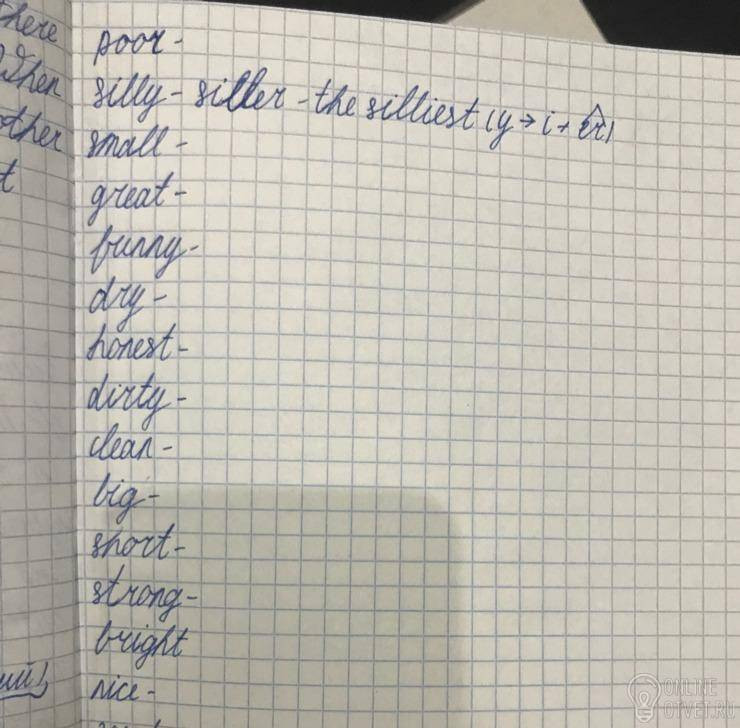 there
When
other
t
poor -
silly - siller - the silliest (y → i + er)
small -
great -
funny -
dry -
honest -
dirty -
clean -
big -
short -
strong -
bright
nice -
ONLINE
OTVET.RU